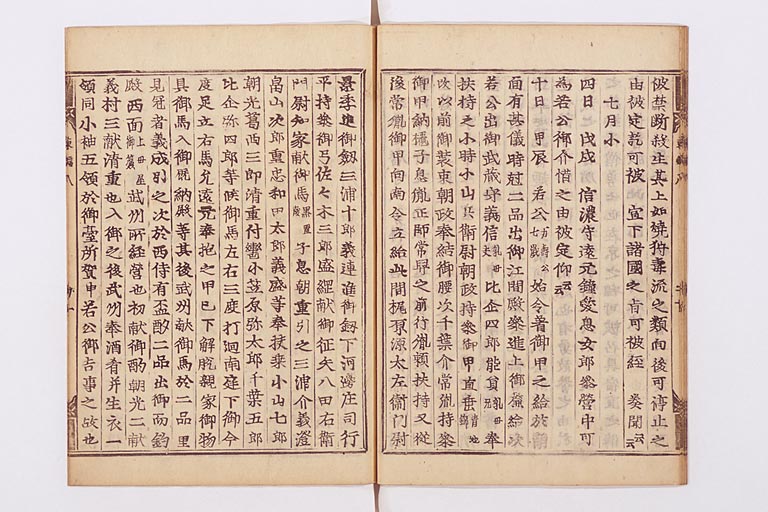 被禁断殺生其上如焼狩毒流之類向後可停止之
由被定訖可被 宣下諸國之旨可被経 奏聞云云
七月小
四日 戊戌 信濃守遠光鍾愛息女郎参營中可
為若公御介惜之由被定仰云云
十日 甲辰 若公 万寿公七歳 始令著御甲之給於南
面有其儀時尅二品出御江間殿参進上御簾給次
若公出御武蔵守義信 乳母夫 比企四郎能員 乳母兄 奉
扶持之小時小山兵衛尉朝政持参御甲直垂 青地錦
改以前御装束朝政奉結御腰次千葉介常胤持参
御甲納櫃子息胤正師常舁之前行胤頼扶持又従
後常胤御甲向南令立給此間梶原源太左衛門尉
景季進御劔三浦十郎義連進御劔下河邊庄司行
平持参御弓佐々木三郎盛綱献御征矢八田右衛
門尉知家献御馬 黒 子息朝重引之三浦介義澄
畠山次郎重忠和田太郎義盛等奉扶乗小山七郎
朝光葛西三郎清重付轡小笠原弥太郎千葉五郎
比企弥四郎等候御馬左右三度打廻南庭下御今
度足立右馬允遠元奉抱之甲已下解脱親家御物
具御馬入御厩納殿等其後武州献御馬於二品里
見冠者義成引之次於西侍有盃酌二品出御而釣
殿西面 上母屋御簾 武州所経營也初献御酌朝光二献
義村三献清重也入御之後武州奉酒肴并生衣一
領同小袖五領於御臺所賀申若公御吉事之故也